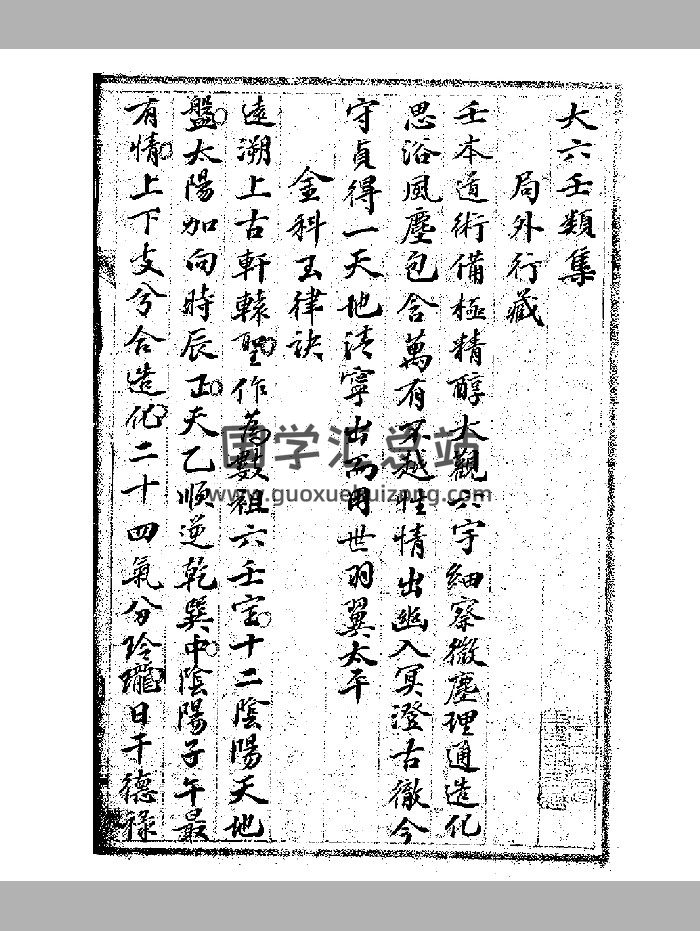 大六壬類集
局外行藏
壬本道術備極精醇大觀六宇細察微塵理通造化
思浴風塵包含萬有不越性情出幽入冥澄古徹今
守貞得一天地清寧出而用世羽翼太平
金科玉律訣
遠溯上古軒轅聖作為數祖六壬定十二陰陽天地
盤太陽加向時辰正天乙順逆乾巽中陰陽子午最
有情上下支兮合造化二十四氣分玲瓏日干德祿
国学汇总站
www.guoxuehuizong.com